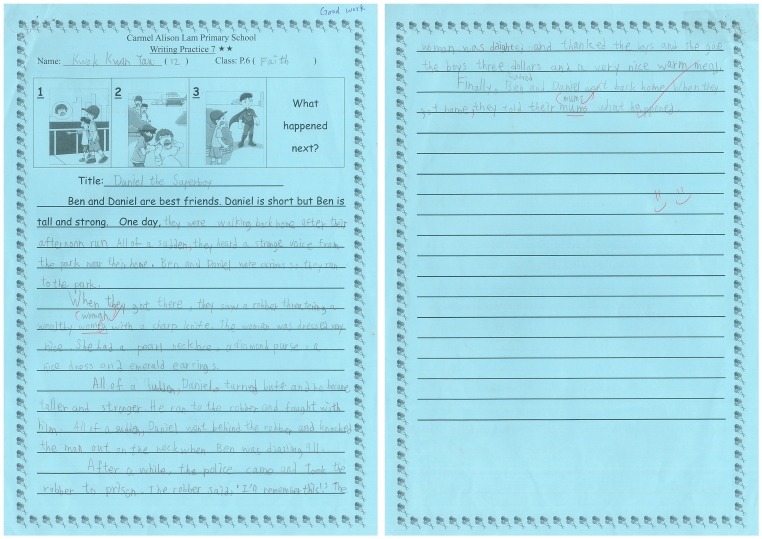 Good work
Carmel Alison Lam Primary School
Writing Practice 7 ★★
Name: Kwok Kwan Yau ( 12 ) Class: P.6 ( Faith )
1 2 3
What
happened
next?
Title: Daniel the Superboy
Ben and Daniel are best friends. Daniel is short but Ben is
tall and strong. One day, they were walking back home after their
afternoon run. All of a sudden, they heard a strange voice from
the park near their home. Ben and Daniel were so they ran
to the park.
When they got there, they saw a robber threatening a
(woman)
wealthy with a charp knife. The woman was dressed
nice. She had a pearl necklace, a diamond purse, a
nice dress and emerald earrings.
All of a sudden, Daniel turned and he became
taller and stronger. He ran to the robber and fought with
him. All of a sudden, Daniel went behind the robber and knocked
the man out in the neck when Ben was
After a while, the police came and took the
robber to prison. The robber said, "I'll remember this!" The
woman was delighted and thanked the boys and she gave
the boys three dollars and a very nice warm meal.
Finally, Ben and Daniel went back home. When they
(mum)
got home, they told their mums what happened.